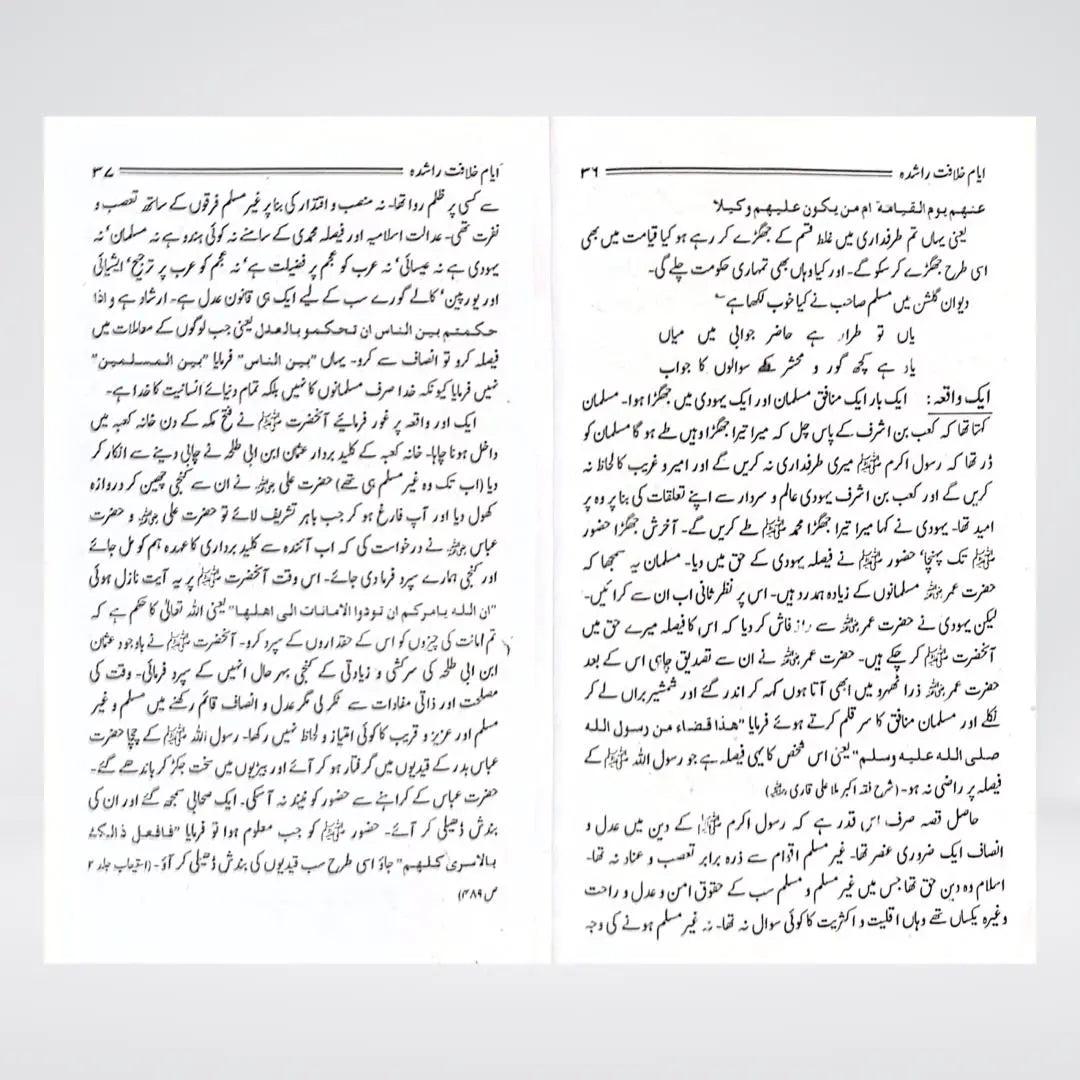 ایام خلافت راشدہ ۳۶
عنہم یوم القیامۃ ام من یکون علیہم وکیلا
یعنی یہاں تم طرفداری میں غلط قسم کے جھگڑے کر رہے ہو کیا قیامت میں بھی
اسی طرح جھگڑے کر سکو گے۔ اور کیا وہاں بھی تمہاری حکومت چلے گی۔
دیوان گلشن میں مسلم صاحب نے کیا خوب لکھا ہے
یاں تو طرار ہے حاضر جوابی میں میاں
یاد ہے کچھ گور و محشر کے سوالوں کا جواب
ایک واقعہ: ایک بار ایک منافق مسلمان اور ایک یہودی میں جھگڑا ہوا۔ مسلمان
کہتا تھا کہ کعب بن اشرف کے پاس چل کہ میرا تیرا جھگڑا وہیں طے ہو گا مسلمان کو
ڈر تھا کہ رسول اکرم ﷺ میری طرفداری نہ کریں گے اور امیر و غریب کا لحاظ نہ
کریں گے اور کعب بن اشرف یہودی عالم و سردار سے اپنے تعلقات کی بنا پر وہ پر
امید تھا۔ یہودی نے کہا میرا تیرا جھگڑا محمد ﷺ طے کریں گے۔ آخرش جھگڑا حضور
ﷺ تک پہنچا' حضور ﷺ نے فیصلہ یہودی کے حق میں دیا۔ مسلمان یہ سمجھا کہ
حضرت عمر رضی اللہ عنہ مسلمانوں کے زیادہ ہمدرد ہیں۔ اس پر نظر ثانی اب ان سے کرائیں۔
لیکن یہودی نے حضرت عمر رضی اللہ عنہ سے راز فاش کر دیا کہ اس کا فیصلہ میرے حق میں
آنحضرت ﷺ کر چکے ہیں۔ حضرت عمر رضی اللہ عنہ نے ان سے تصدیق چاہی اس کے بعد
حضرت عمر رضی اللہ عنہ ذرا ٹھہرو میں ابھی آتا ہوں کہہ کر اندر گئے اور شمشیر براں لے کر
نکلے اور مسلمان منافق کا سر قلم کرتے ہوئے فرمایا "ھذا قضاء من رسول اللہ
صلی اللہ علیہ وسلم" یعنی اس شخص کا یہی فیصلہ ہے جو رسول اللہ ﷺ کے
فیصلہ پر راضی نہ ہو۔ (شرح فقہ اکبر ملا علی قاری)
حاصل قصہ صرف اس قدر ہے کہ رسول اکرم ﷺ کے دین میں عدل و
انصاف ایک ضروری عنصر تھا۔ غیر مسلم اقوام سے ذرہ برابر تعصب و عناد نہ تھا۔
اسلام وہ دین حق تھا جس میں غیر مسلم و مسلم سب کے حقوق امن و عدل و راحت
وغیرہ یکساں تھے وہاں اقلیت و اکثریت کا کوئی سوال نہ تھا۔ نہ غیر مسلم ہونے کی وجہ
ایام خلافت راشدہ ۳۷
سے کسی پر ظلم روا تھا۔ نہ منصب و اقتدار کی بنا پر غیر مسلم فرقوں کے ساتھ تعصب و
نفرت تھی۔ عدالت اسلامیہ اور فیصلہ محمدی کے سامنے نہ کوئی ہندو ہے نہ مسلمان' نہ
یہودی ہے نہ عیسائی' نہ عرب کو عجم پر فضیلت ہے' نہ عجم کو عرب پر ترجیح' ایشیائی
اور یورپین' کالے گورے سب کے لیے ایک ہی قانون عدل ہے۔ ارشاد ہے واذا
حکمتم بین الناس ان تحکمو بالعدل یعنی جب لوگوں کے معاملات میں
فیصلہ کرو تو انصاف سے کرو۔ یہاں "بین الناس" فرمایا "بین المسلمین"
نہیں فرمایا کیونکہ خدا صرف مسلمانوں کا نہیں بلکہ تمام دنیائے انسانیت کا خدا ہے۔
ایک اور واقعہ پر غور فرمائیے آنحضرت ﷺ نے فتح مکہ کے دن خانہ کعبہ میں
داخل ہونا چاہا۔ خانہ کعبہ کے کلید بردار عثمان ابن ابی طلحہ نے چابی دینے سے انکار کر
دیا (اب تک وہ غیر مسلم ہی تھے) حضرت علی رضی اللہ عنہ نے ان سے کنجی چھین کر دروازہ
کھول دیا اور آپ فارغ ہو کر جب باہر تشریف لائے تو حضرت علی رضی اللہ عنہ و حضرت
عباس رضی اللہ عنہ نے درخواست کی کہ اب آئندہ سے کلید برداری کا عہدہ ہم کو مل جائے
اور کنجی ہمارے سپرد فرما دی جائے۔ اس وقت آنحضرت ﷺ پر یہ آیت نازل ہوئی
"ان اللہ یامرکم ان تودوا الامانات الی اھلہا" یعنی اللہ تعالیٰ کا حکم ہے کہ
تم امانت کی چیزوں کو اس کے حقداروں کے سپرد کرو۔ آنحضرت ﷺ نے باوجود عثمان
ابن ابی طلحہ کی سرکشی و زیادتی کے کنجی بہر حال انہیں کے سپرد فرمائی۔ وقت کی
مصلحت اور ذاتی مفادات سے ٹکر لی مگر عدل و انصاف قائم رکھنے میں مسلم و غیر
مسلم اور عزیز و قریب کا کوئی امتیاز و لحاظ نہیں رکھا۔ رسول اللہ ﷺ کے چچا حضرت
عباس بدر کے قیدیوں میں گرفتار ہو کر آئے اور بیڑیوں میں سخت جکڑ کر باندھے گئے۔
حضرت عباس کے کراہنے سے حضور کو نیند نہ آسکی۔ ایک صحابی سمجھ گئے اور ان کی
بندش ڈھیلی کر آئے۔ حضور ﷺ کو جب معلوم ہوا تو فرمایا "فافعل ذالک
بالاسری کلہم" جاؤ اسی طرح سب قیدیوں کی بندش ڈھیلی کر آؤ۔ (استیعاب جلد ۲
ص ۴۸۹)